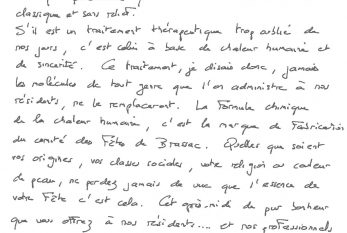 classique et sans relief.
S'il est un traitement thérapeutique trop oublié de
nos jours, c'est celui à base de chaleur humaine et
de sincérité. Ce traitement, je disais donc, jamais
les molécules de tout genre que l'on administre à nos
résidents, ne le remplaceront. La formule chimique
de la chaleur humaine, c'est la marque de Fabrication
du comité des Fête de Brassac. Quelles que soient
vos origines, vos classes sociales, votre religion ou couleur
de peau, ne perdez jamais de vue que l'essence de
votre Fête c'est cela. Cet après-midi de pur bonheur
que vous offrez à nos résidents.... et nos professionnels